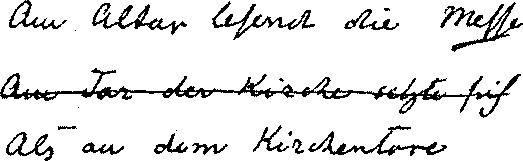 Am Altar lesend die Messe
Am Tor der Kirche setzte sich
Als an dem Kirchentore